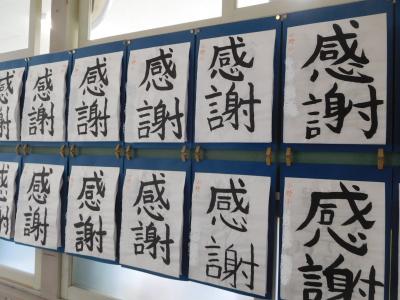 感謝
感謝
感謝
感謝
感謝
感謝
感謝
感謝
感謝
感謝
感謝
感謝